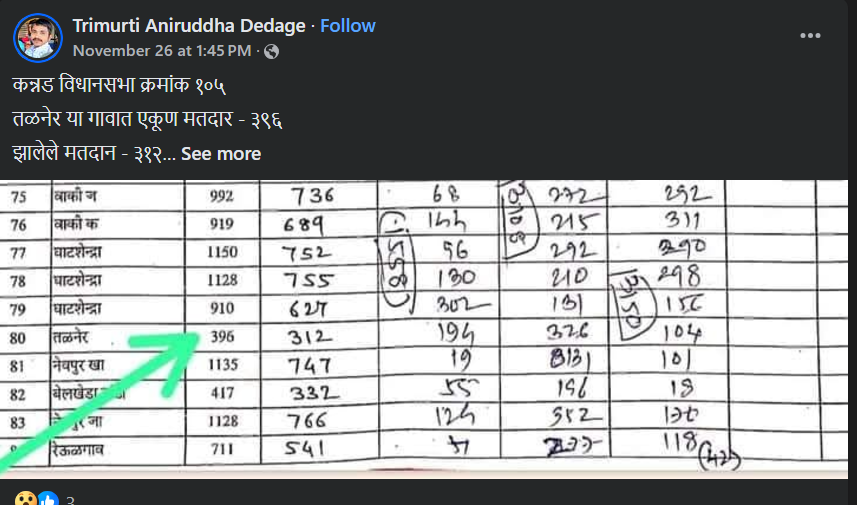 Trimurti Aniruddha Dedage · Follow
November 26 at 1:45 PM ·
कन्नड विधानसभा क्रमांक १०५
तळनेर या गावात एकूण मतदार - ३९६
झालेले मतदान - ३१२... See more
75 वाकी ज 992 736 68 272 292
76 वाकी क 919 689 144 215 311
77 घाटशेन्द्रा 1150 752 56 292 390
78 घाटशेन्द्रा 1128 755 130 210 298
79 घाटशेन्द्रा 910 627 302 131 156
80 तळनेर 396 312 194 326 104
81 नेवपुर खा 1135 747 19 101
82 बेलखेडा 417 332 55 196 18
83 जा 1128 766 124 352
रेऊळगाव 711 541 118
3